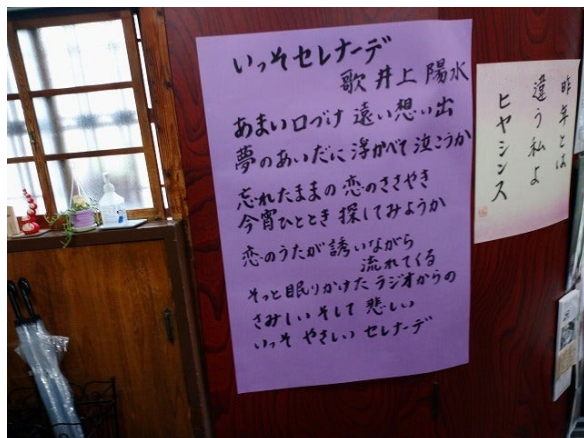 いっそセレナーデ
歌 井上 陽水
あまい口づけ 遠い想い出
夢のあいだに 浮かべて 泣こうか
忘れたままの 恋のささやき
今宵ひととき 探してみようか
恋のうたが 誘いながら
流れてくる
そっと眠りかけた ラジオからの
さみしい そして 悲しい
いっそ やさしい セレナーデ
昨年とは
違う私よ
ヒヤシンス